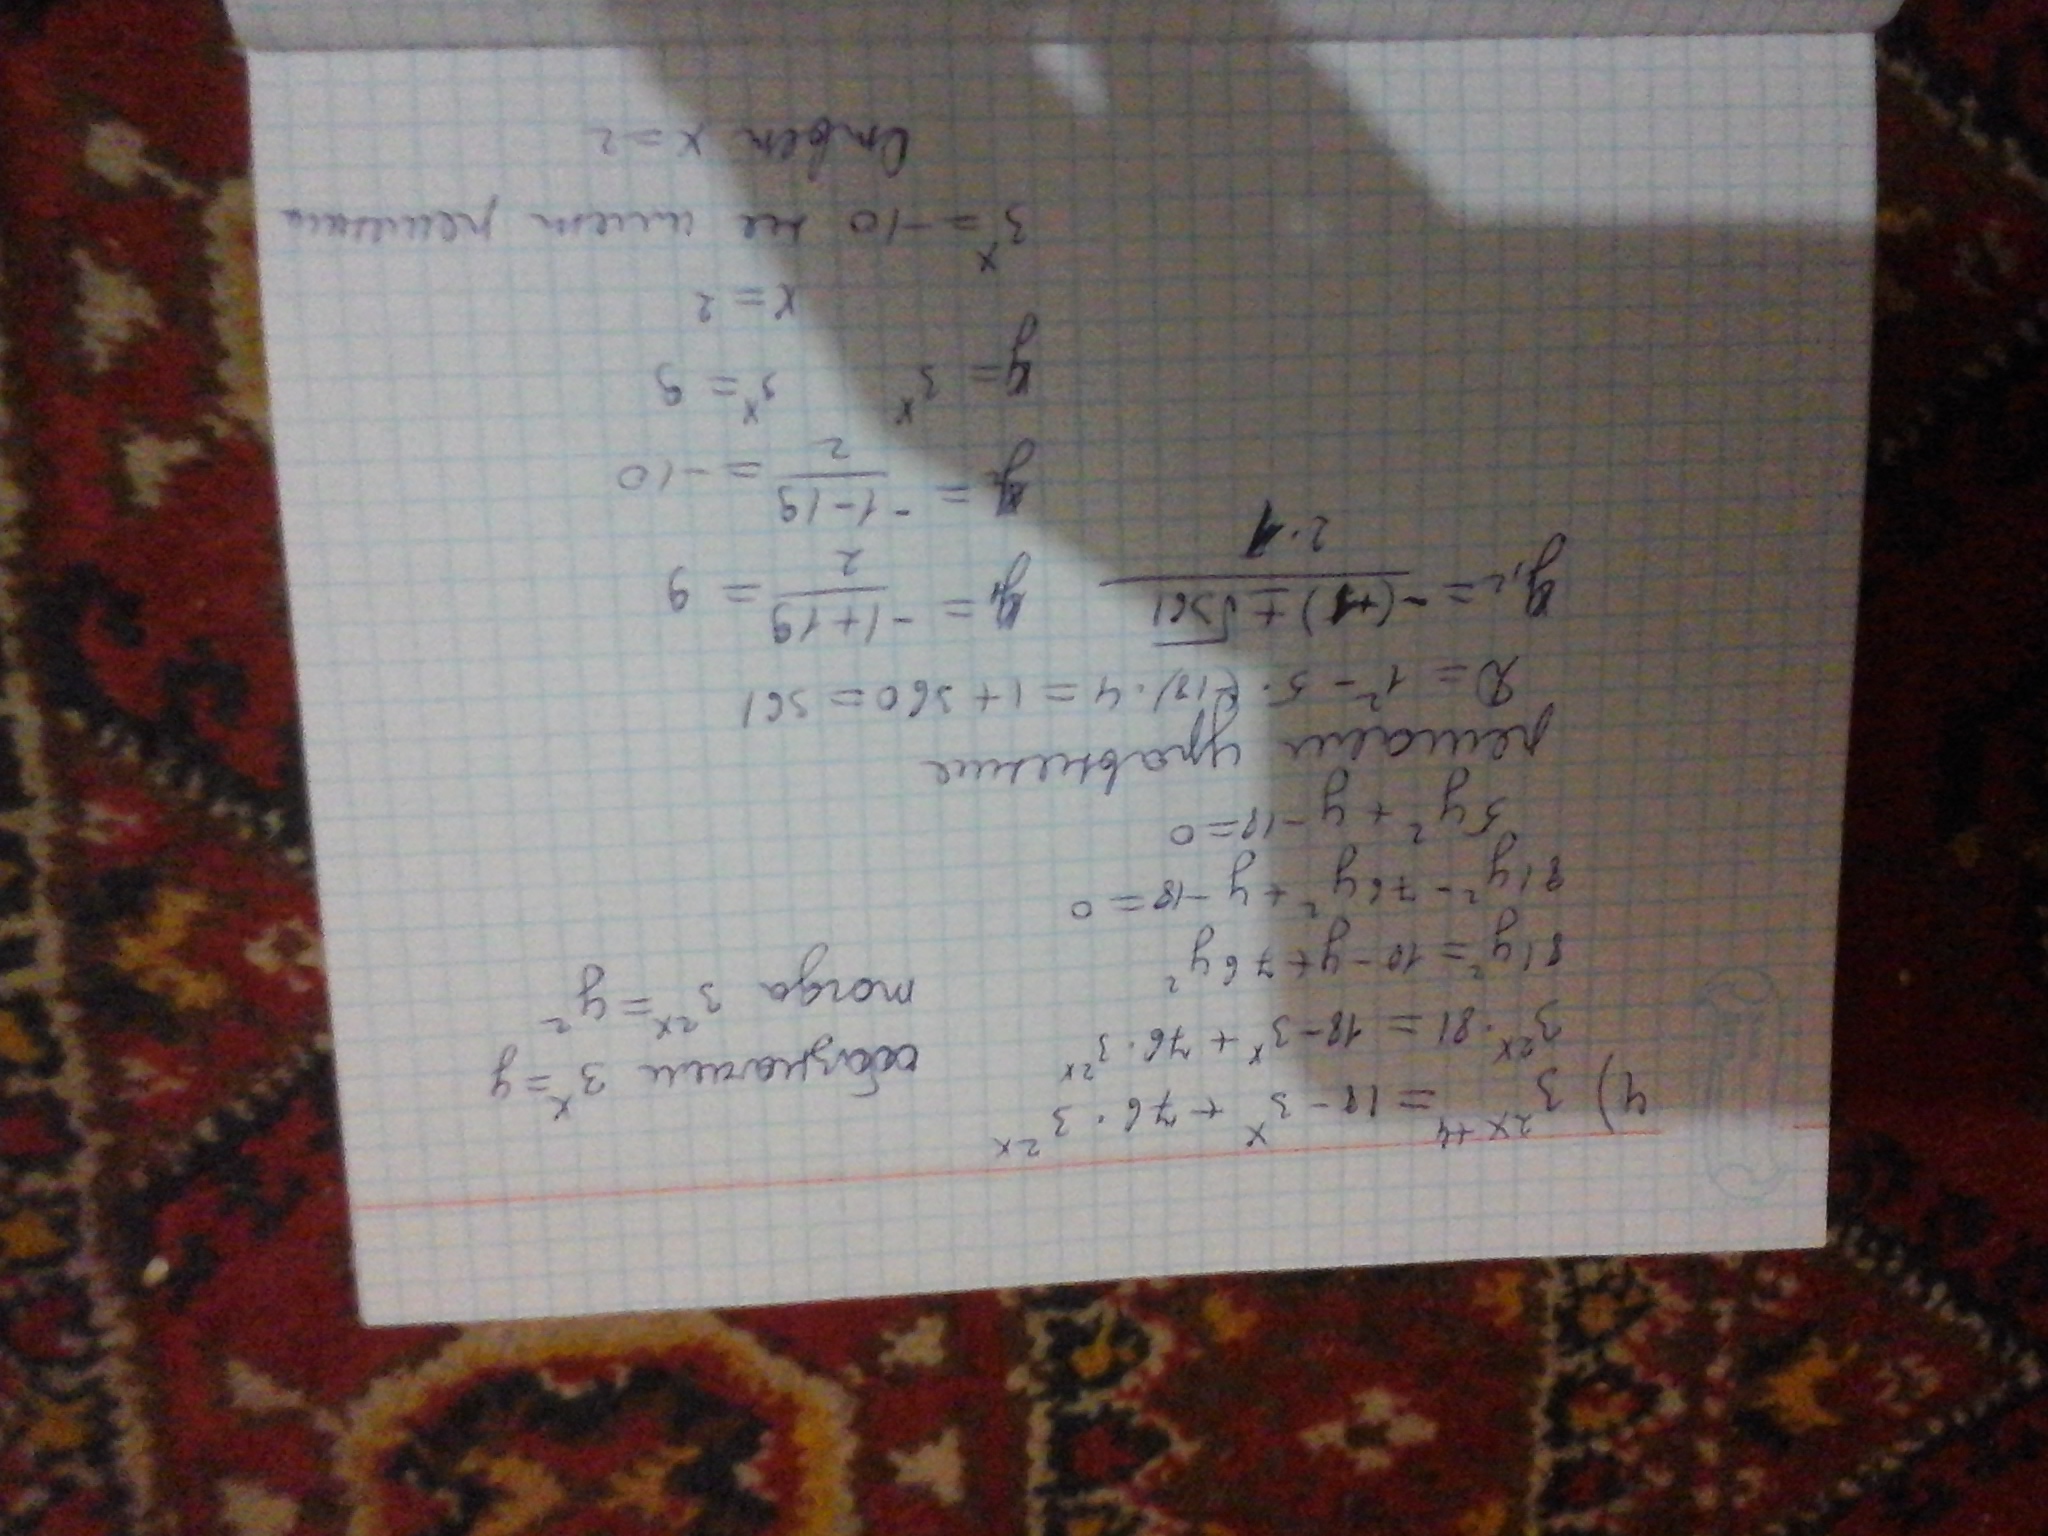 4) 3^{2x+4} = 18 - 3^x + 76 · 3^{2x}
3^{2x} · 81 = 18 - 3^x + 76 · 3^{2x} обозначим 3^x = y
81y² = 18 - y + 76y² тогда 3^{2x} = y²
81y² - 76y² + y - 18 = 0
5y² + y - 18 = 0
решаем уравнение
D = 1² - 5 · (-18) · 4 = 1 + 360 = 361
y₁,₂ = (-(+1) ± √361) / (2·1) y₁ = (-1+19)/2 = 9
y₂ = (-1-19)/2 = -10
y = 3^x 3^x = 9
x = 2
3^x = -10 не имеет решения
Ответ x = 2